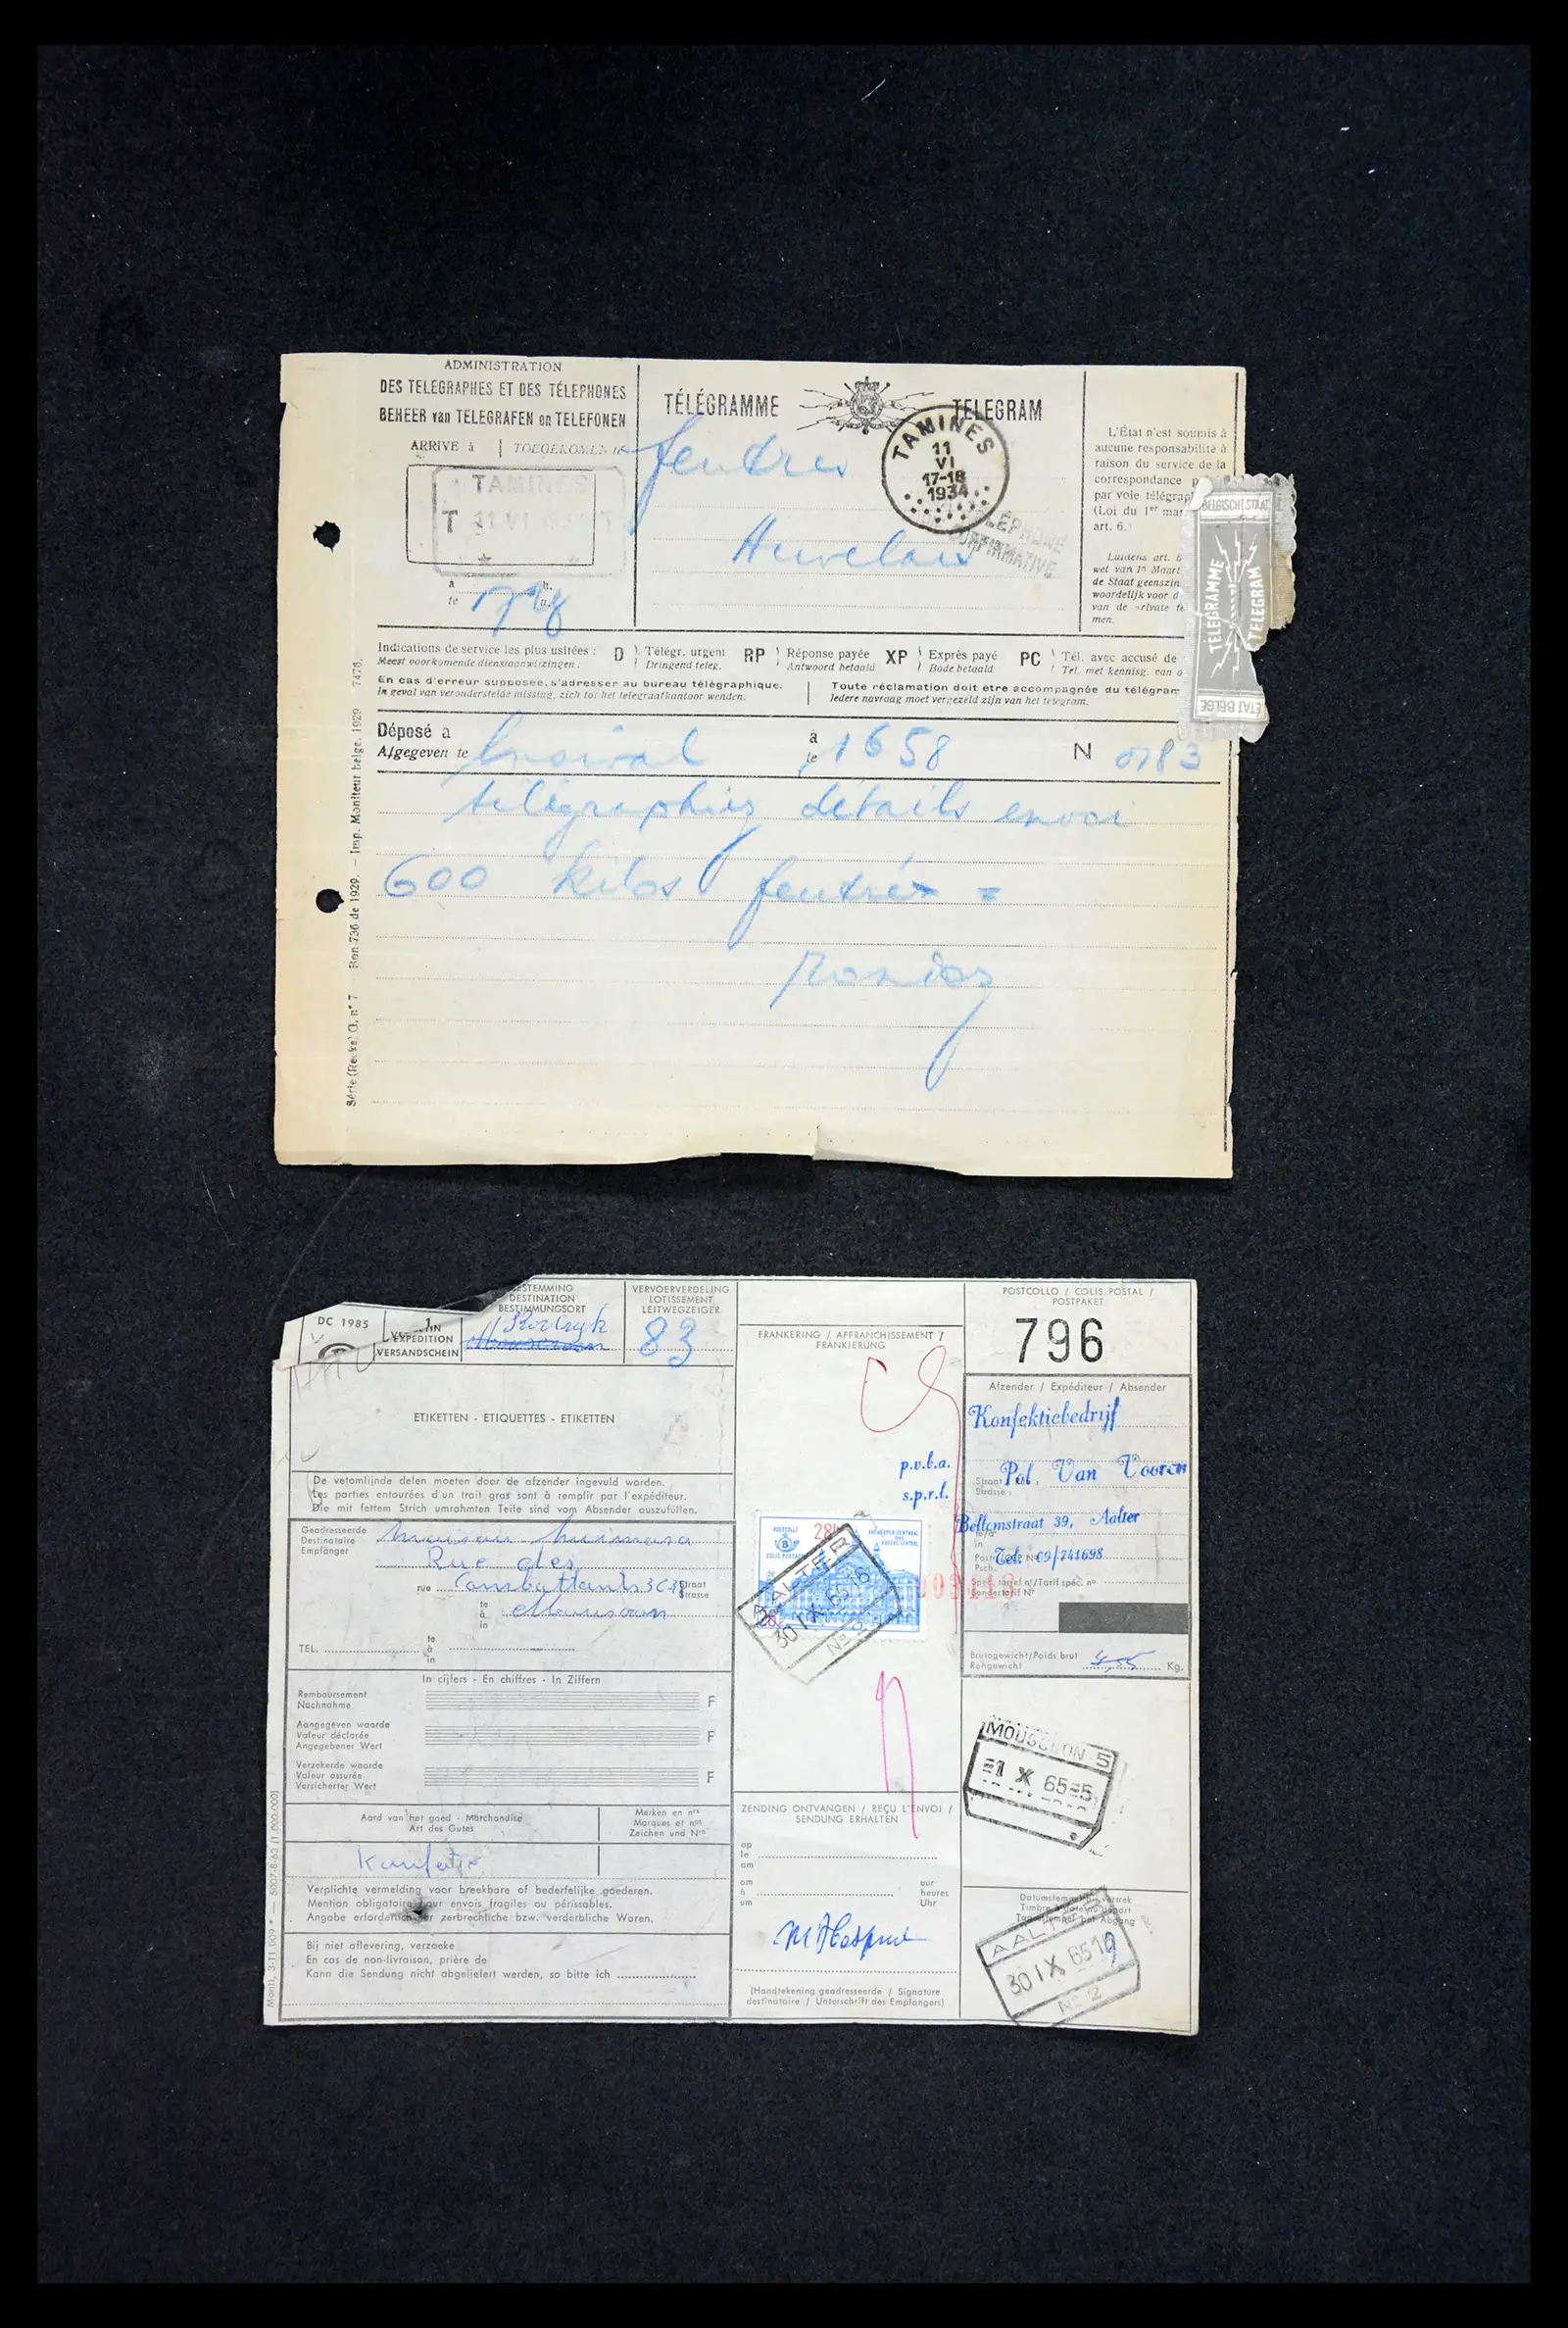 ADMINISTRATION
DES TÉLÉGRAPHES ET DES TÉLÉPHONES
BEHEER van TELEGRAFEN en TELEFONEN
ARRIVE à | TOEGEKOMEN te
TAMINES
T 11 VI T
à h.
te u.
TÉLÉGRAMME TELEGRAM
TAMINES
11
VI
17-18
1934
TÉLÉPHONE
CONFIRMATIVE
L'État n'est soumis à
aucune responsabilité à
raison du service de la
correspondance
par voie
(Loi du 1er
art. 6.
Luidens art. 6
wet van 1n Maart
de Staat geenszin
woordelijk voor d
van de private te
men.
BELGISCHE STAAT
TÉLÉGRAMME
TELEGRAM
ÉTAT BELGE
Indications de service les plus usitées :
Meest voorkomende dienstaanwijzingen :
D Télégr. urgent
Dringend teleg.
RP Réponse payée
Antwoord betaald
XP Exprès payé
Bode betaald
PC Tél. avec accusé de
Tel. met kennisg. van o
En cas d'erreur supposée, s'adresser au bureau télégraphique.
In geval van veronderstelde missing, zich tot het telegraafkantoor wenden.
Toute réclamation doit etre accompagnée du télégram
Iedere navraag moet vergezeld zijn van het telegram.
Déposé a
Afgegeven te
à
te
1658
N 0783
télégraphiez détails envoi
600 kilos
Série (Reeks) G, n° 7 Bon 736 de 1929. — Imp. Moniteur belge, 1929 7478.
DC 1985
1
EXPEDITION
VERSANDSCHEIN
BESTEMMING
DESTINATION
BESTIMMUNGSORT
Kortryk
VERVOERVERDELING
LOTISSEMENT
LEITWEGZEIGER
83
ETIKETTEN - ETIQUETTES - ETIKETTEN
De vetomlijnde delen moeten door de afzender ingevuld worden.
Les parties entourées d'un trait gras sont à remplir par l'expéditeur.
Die mit fettem Strich umrahmten Teile sind vom Absender auszufüllen.
Geadresseerde
Destinataire
Empfänger
Maison
Rue des
rue Combattants
Straat
Strasse
te
à
in
Mouscron
TEL.
te
à
in
In cijfers - En chiffres - In Ziffern
Remboursement
Nachnahme
F
Aangegeven waarde
Valeur déclarée
Angegebener Wert
F
Verzekerde waarde
Valeur assurée
Versicherter Wert
F
Aard van het goed - Marchandise
Art des Gutes
Merken en nrs
Marques et nos
Zeichen und Nrn
Verplichte vermelding voor breekbare of bederfelijke goederen.
Mention obligatoire pour envois fragiles ou périssables.
Angabe erforderlich für zerbrechliche bzw. verderbliche Waren.
Bij niet aflevering, verzoeke
En cas de non-livraison, prière de
Kann die Sendung nicht abgeliefert werden, so bitte ich
Montl, 3-11.009 * — 5007-8-63 (1.000.000)
FRANKERING / AFFRANCHISSEMENT /
FRANKIERUNG
p.v.b.a.
s.p.r.l.
POSTCOLLI
B
COLIS POSTAL
28F
ANTWERPEN-CENTRAAL
ANVERS-CENTRAL
AALTER
30 IX 65 16
No 2
ZENDING ONTVANGEN / REÇU L'ENVOI /
SENDUNG ERHALTEN
op
le
am
om
à
um
uur
heures
Uhr
(Handtekening geadresseerde / Signature
destinataire / Unterschrift des Empfangers)
POSTCOLLO / COLIS POSTAL /
POSTPAKET
796
Afzender / Expéditeur / Absender
Konfektiebedrijf
Straat
Strasse :
Pol. Van Vooren
Bellemstraat 39, Aalter
Tel. 09/741698
Brutogewicht/Poids brut
Rohgewicht
Kg.
MOUSCRON 5
-1 X 65-5
Datumstempel bij vertrek
Timbre à date au départ
Tagesstempel bei Abgang
AALTER
30 IX 65 19
No 2